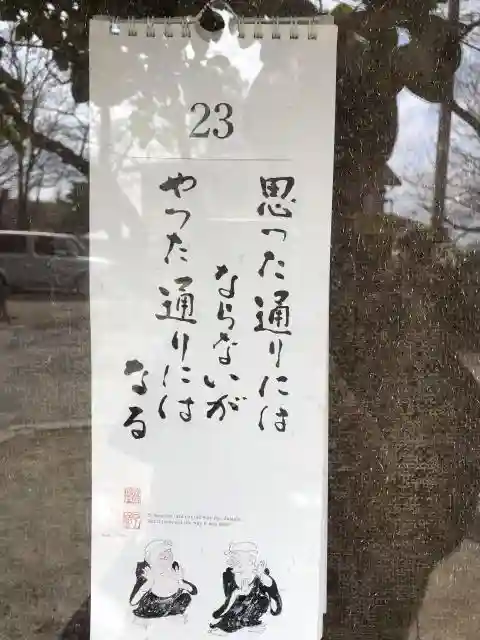 23
思った通りには
ならないが
やった通りには
なる